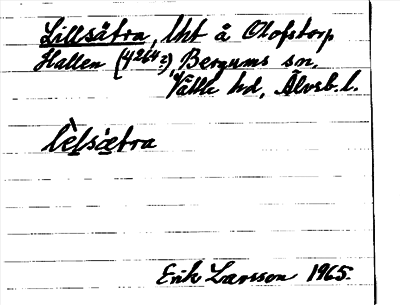 Lillsätra, lht å Olofstorp
Hallen (4264:2) Bergums sn,
Vättle hd, Älvsb. l.
Erik Larsson 1965.